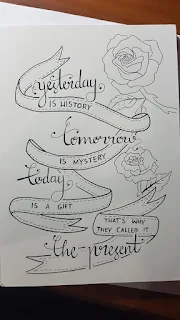 yesterday
IS HISTORY
tomorrow
IS MYSTERY
today
IS A GIFT
THAT'S WHY
THEY CALLED IT
the present